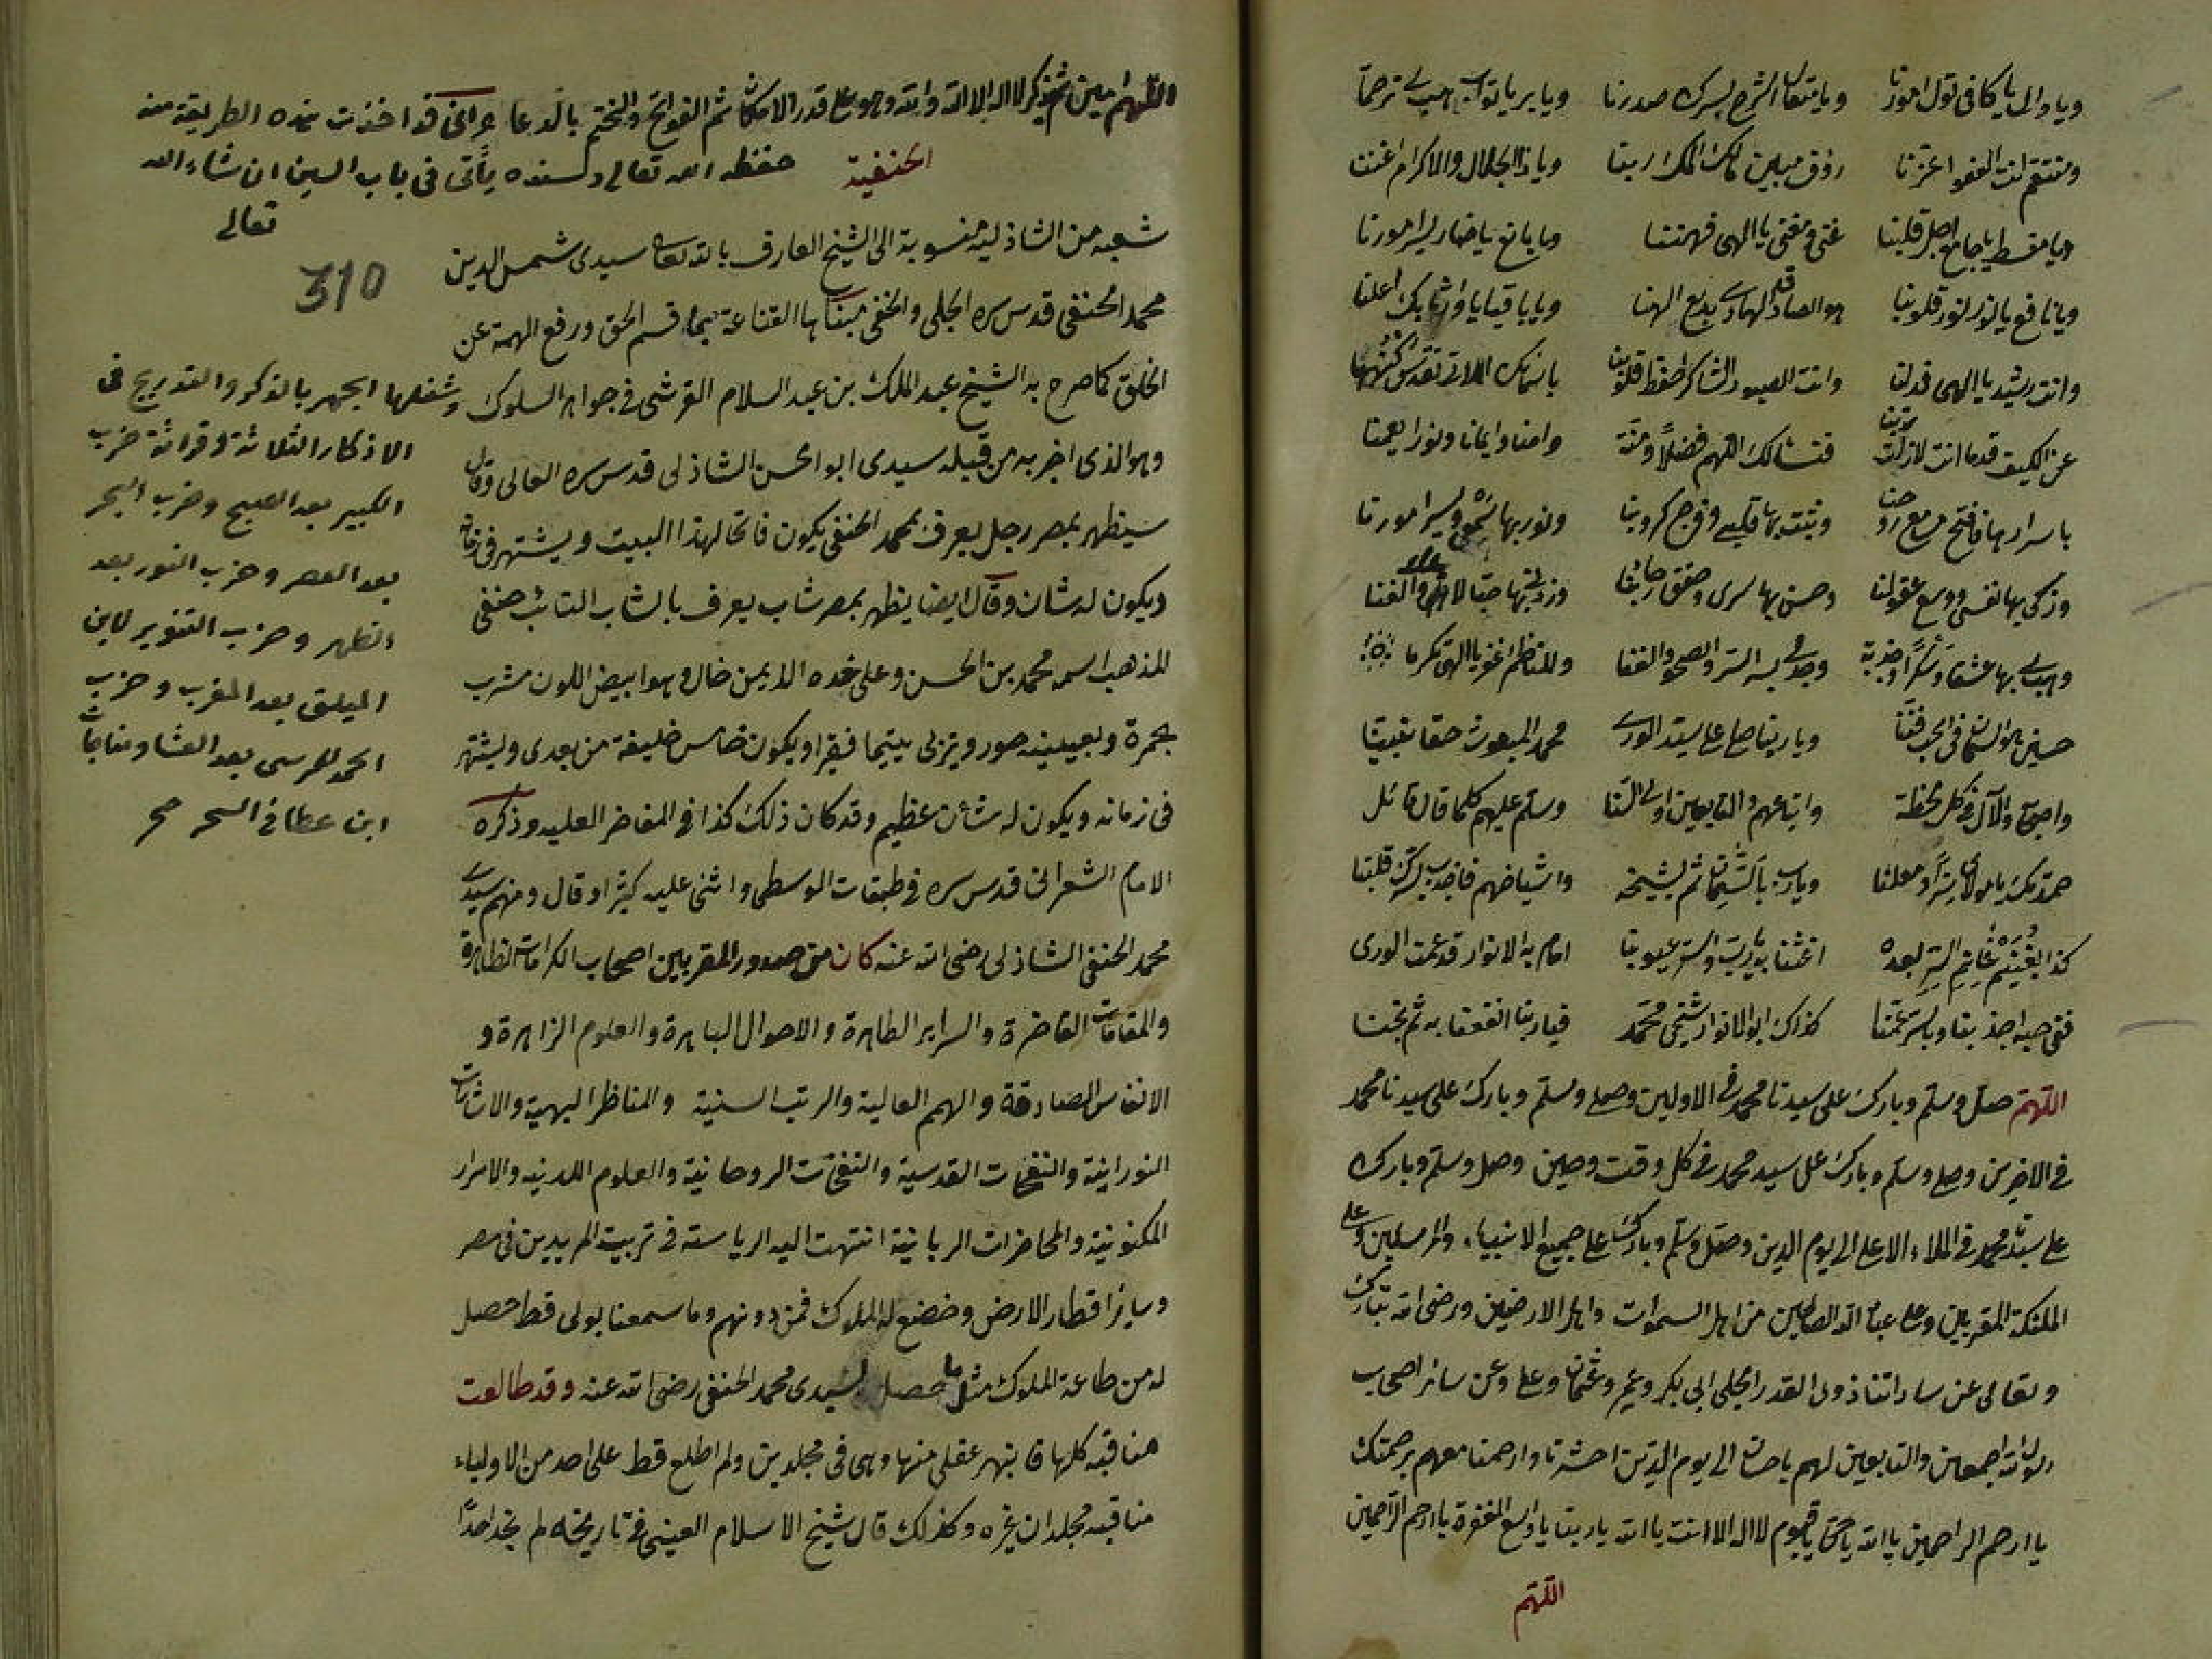 ويا والى يا كافى تول امورنا ويا متعال اشرح بسرك صدرنا ويا بر يا تواب هب لى ترحما
ومنتقم انت العفو اعزنا رؤف مبين مالك الملك ربنا ويا ذا الجلال والاكرام اغننا
ويا مقسط يا جامع قلبنا غنى ومغنى يا الهى فهمتنا ويا مانع يا ضار يسر امورنا
ويا نافع يا نور نور قلوبنا هو الصادق الهادى بديع الهنا ويا باقيا يا وارثا بك اعلنا
وانت رشيد يا الهى فدلنا وانت الصبور الشاكر احفظ قلوبنا باسمائك اللاتى تقدس كنهها
عن الكيف قدما انت لازلت فنسألك اللهم فضلا ومنة وامنا وايمانا ونورا يعمنا
باسرارها فافتح مسامع روحنا وثبت بها قلبى وفرج كروبنا ونور بها سمعى ويسر امورنا
وزكى بها نفسى ووسع عقولنا وحسن بها سرى وحقق رجائنا وزدنى بها حبا
وهب لى بها عشقا وسكرا وجذبة وجد لى بسر الستر والصحو والفنا وللناظم اغفر يا الهى تكرما
ويا ربنا صل على سيد الورى محمد المبعوث حقا
واصحابه والآل فى كل لحظة واتباعهم والتابعين اولى الثنا وسلم عليهم كلما قال قائل
حمدتك يا مولاى سرا ومعلنا ويا رب بالسمان ثم بشيخه واشياخهم فاجذب بسرك قلبنا
اغثنا به يا رب واستر عيوبنا امام به الانوار قد عمت الورى
ففى حبه اجذبنا وبالسر عمنا كذاك ابو الانوار شيخى محمد فيا ربنا انفعنا به ثم نجنا
اللهم صل وسلم وبارك على سيدنا محمد فى الاولين وصل وسلم وبارك على سيدنا محمد
فى الاخرين وصل وسلم وبارك على سيد محمد فى كل وقت وحين وصل وسلم وبارك
على سيدنا محمد فى الملاء الاعلى الى يوم الدين وصل وسلم وبارك على جميع الانبياء والمرسلين وعلى
الملئكة المقربين وعلى عباد الله الصالحين من اهل السموات واهل الارضين ورضى الله تبارك
وتعالى عن ساداتنا ذوى القدر الجلى ابى بكر وعمر وعثمان وعلى وعن سائر اصحاب
رسول الله اجمعين والتابعين لهم باحسان الى يوم الدين احشرنا وارحمنا معهم برحمتك
يا ارحم الراحمين يا الله يا حى يا قيوم لا اله الا انت يا الله يا ربنا يا واسع المغفرة يا ارحم الراحمين
اللهم
اللهم امين ثم يذكر لا اله الا الله والله وهو على قدر الامكان ثم الفواتح والختم بالدعا وانى قد اخذت هذه الطريقة منه
حفظه الله تعالى وسنده يأتى فى باب السين ان شاء الله
تعالى
الحنفية
شعبه من الشاذلية منسوبة الى الشيخ العارف بالله تعالى سيدى شمس الدين
310
محمد الحنفى قدس سره الجلى والخفى مبناها القناعة بما قسم الحق ورفع الهمة عن
الخلق كما صرح به الشيخ عبد الملك بن عبد السلام القرشى فى جواهر السلوك
وهو الذى اخبر به من قبله سيدى ابو الحسن الشاذلى قدس سره العالى وقال
سيظهر بمصر رجل يعرف بمحمد الحنفى يكون فاتحا لهذا البيت ويشتهر فى زمانه
ويكون له شان وقال ايضا يظهر بمصر شاب يعرف بالشاب التائب حنفى
المذهب اسمه محمد بن الحسن وعلى خده الايمن خال وهو ابيض اللون مشرب
بحمرة وبعينيه حور ويربى يتيما فقيرا ويكون خامس خليفة من بعدى ويشتهر
فى زمانه ويكون له شأن عظيم وقد كان ذلك كذا فى المفاخر العليه وذكره
الامام الشعرانى قدس سره فى طبقات الوسطى واثنى عليه كثيرا وقال ومنهم سيدى
محمد الحنفى الشاذلى رضى الله عنه كان من صدور المقربين اصحاب الكرامات الظاهرة
والمقامات الفاخرة والسراير الطاهرة والاحوال الباهرة والعلوم الزاهرة و
الانفاس الصادقة والهمم العالية والرتب السنية والمناظر البهية والاشارات
النورانية والنفحات القدسية والنفحات الروحانية والعلوم اللدنيه والاسرار
المكنونية والمحاضرات الربانية انتهت اليه الرياسة فى تربية المريدين فى مصر
وسائر اقطار الارض وخضع له الملوك فمن دونهم وما سمعنا بولى قط حصل
له من طاعة الملوك مثل ما حصل لسيدى محمد الحنفى رضى الله عنه وقد طالعت
مناقبه كلها فانبهر عقلى منها وهى فى مجلدين ولم اطلع قط على احد من الاولياء
مناقبه مجلدان غيره وكذلك قال شيخ الاسلام العينى فى تاريخه لم نجد احدا
وشغلها الجهر بالذكر والتدريج فى
الاذكار الثلاثة وقرائة حزب
الكبير بعد الصبح وحزب البحر
بعد العصر وحزب النور بعد
الظهر وحزب التنوير لابن
الميلق بعد المغرب وحزب
الحمد للمرسى بعد العشا ومناجات
ابن عطا فى السحر صح